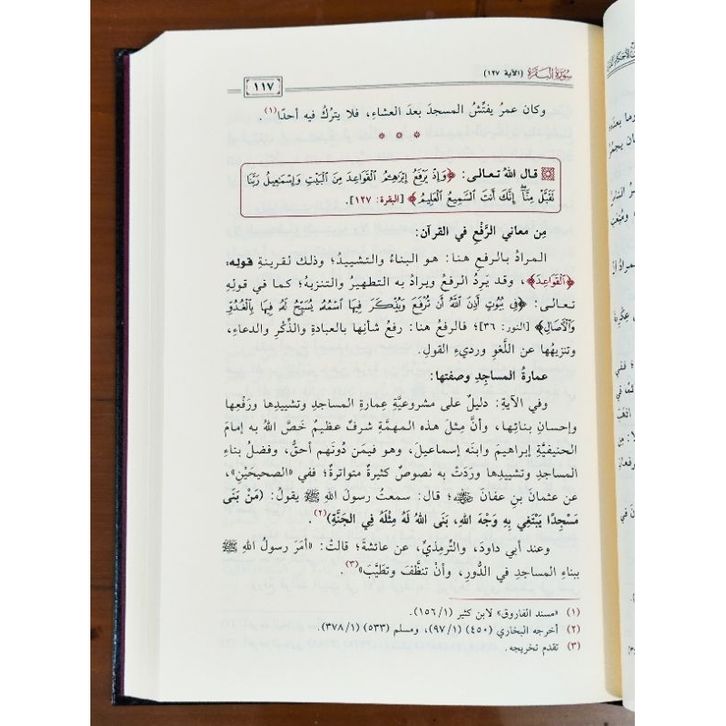 سورة البقرة (الآية ١٢٧)
١١٧
وكان عمرُ يفتِّشُ المسجدَ بعدَ العشاءِ، فلا يتركُ فيه أحدًا(١).
* * *
قال اللهُ تعالى: ﴿وَإِذْ يَرْفَعُ إِبْرَاهِيمُ الْقَوَاعِدَ مِنَ الْبَيْتِ وَإِسْمَاعِيلُ رَبَّنَا
تَقَبَّلْ مِنَّا إِنَّكَ أَنْتَ السَّمِيعُ الْعَلِيمُ﴾ [البقرة: ١٢٧].
مِن معاني الرَّفْعِ في القرآن:
المرادُ بالرفعِ هنا: هو البناءُ والتشييدُ؛ وذلك لقرينةِ قولِه:
﴿الْقَوَاعِدَ﴾، وقد يَرِدُ الرفعُ ويرادُ به التطهيرُ والتنزيهُ؛ كما في قولِهِ
تعالى: ﴿فِي بُيُوتٍ أَذِنَ اللَّهُ أَنْ تُرْفَعَ وَيُذْكَرَ فِيهَا اسْمُهُ يُسَبِّحُ لَهُ فِيهَا بِالْغُدُوِّ
وَالْآصَالِ﴾ [النور: ٣٦]؛ فالرفعُ هنا: رفعُ شأنِها بالعبادةِ والذِّكْرِ والدعاءِ،
وتنزيهُها عن اللَّغوِ ورديءِ القولِ.
عمارةُ المساجدِ وصفتها:
وفي الآيةِ: دليلٌ على مشروعيَّةِ عِمارةِ المساجدِ وتشييدِها ورَفْعِها
وإحسانِ بنائِها، وأنَّ مِثلَ هذه المهمَّةِ شرفٌ عظيمٌ خَصَّ اللهُ به إمامَ
الحنيفيَّةِ إبراهيمَ وابنَه إسماعيلَ، وهو فيمَن دُونَهم أحقُّ، وفضلُ بناءِ
المساجدِ وتشييدِها وردَتْ به نصوصٌ كثيرةٌ متواترةٌ؛ ففي «الصحيحَيْنِ»،
عن عثمانَ بنِ عفانَ رضي الله عنه؛ قال: سمعتُ رسولَ اللهِ ﷺ يقولُ: (مَنْ بَنَى
مَسْجِدًا يَبْتَغِي بِهِ وَجْهَ اللهِ، بَنَى اللهُ لَهُ مِثْلَهُ فِي الجَنَّةِ)(٢).
وعند أبي داودَ، والتِّرمِذيِّ، عن عائشةَ؛ قالتْ: «أمَرَ رسولُ اللهِ ﷺ
ببناءِ المساجدِ في الدُّورِ، وأنْ تنظَّفَ وتطيَّبَ»(٣).
(١) «مسند الفاروق» لابن كثير (١/١٥٦).
(٢) أخرجه البخاري (٤٥٠) (١/٩٧)، ومسلم (٥٣٣) (١/٣٧٨).
(٣) تقدم تخريجه.